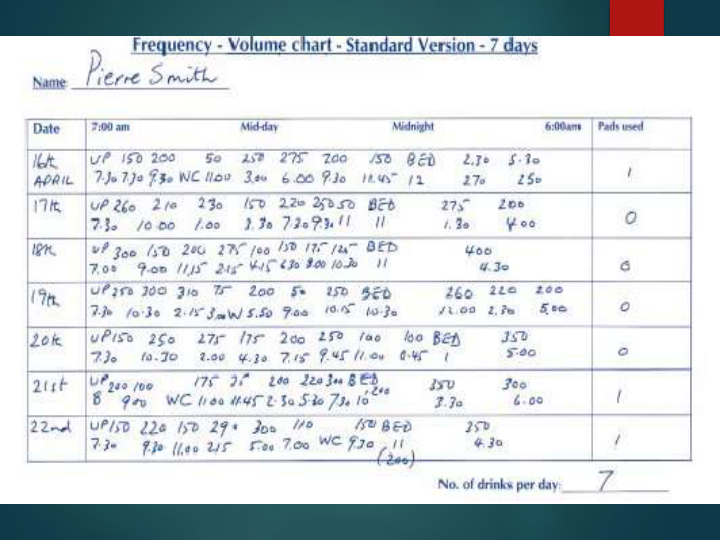 Frequency - Volume chart - Standard Version - 7 days
Name Pierre Smith
Date 7:00 am Mid-day Midnight 6:00am Pads used
16th UP 150 200 50 250 275 200 150 BED 2.30 5.30
APRIL 7.30 7.30 9.30 WC 11.00 3.00 6.00 9.30 11.45 12 270 250 1
17th UP 260 210 230 150 220 250 50 BED 275 200
7.30 10.00 1.00 3.30 7.30 9.30 11 11 1.30 4.00 0
18th UP 300 150 200 275 100 150 175 125 BED 400
7.00 9.00 11.15 2.15 4.15 6.30 8.00 10.30 11 4.30 0
19th UP 250 300 310 75 200 50 250 BED 260 220 200
7.30 10.30 2.15 3.00 W 5.50 9.00 10.15 10.30 12.00 2.30 5.00 0
20th UP 150 250 275 175 200 250 100 100 BED 350
7.30 10.30 2.00 4.30 7.15 9.45 11.00 0.45 1 5.00 0
21st UP 200 100 175 200 220 300 BED 350 300
8 9.00 WC 11.00 11.45 2.30 5.30 7.30 10 200 3.30 6.00 1
22nd UP 150 220 150 290 300 110 150 BED 250
7.30 9.30 11.00 2.15 5.00 7.00 WC 9.30 11 4.30 1
(200)
No. of drinks per day: 7